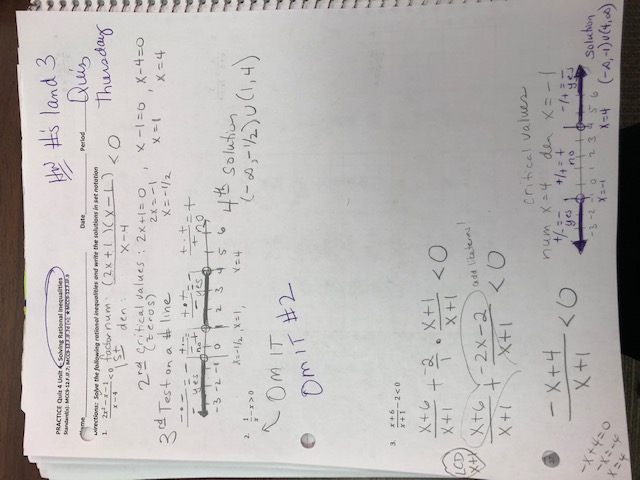 HW #'s 1 and 3
PRACTICE Quiz 4 Unit 4 Solving Rational Inequalities
Name Date Period
Quiz
Thursday
Directions: Solve the following rational inequalities and write the solutions in set notation
1. 2x² - x - 1 / x - 4 < 0 factor num: (2x+1)(x-1) / x-4 < 0
1st den:
2nd critical values: 2x+1=0, x-1=0, x-4=0
(zeros) 2x=-1 x=1, x=4
x=-1/2
3rd Test on a # line
yes no yes no
-3 -2 -1 0 1 2 3 4 5 6
x=-1/2, x=1, x=4
4th solution
(-∞, -1/2) ∪ (1, 4)
2. 1/x - x > 0
OMIT
OMIT #2
3. x+6 / x+1 - 2 < 0
x+6 / x+1 + -2/1 • x+1 / x+1 < 0
LCD
x+1
x+6 / x+1 + -2x-2 / x+1 < 0
add like terms!
-x+4 / x+1 < 0
-x+4=0
-x=-4
x=4
critical values
num x=4 den x=-1
+/- = - +/+ = + -/+ = -
yes no yes
-3 -2 -1 0 1 2 3 4 5 6
x=-1 x=4
Solution
(-∞, -1) ∪ (4, ∞)